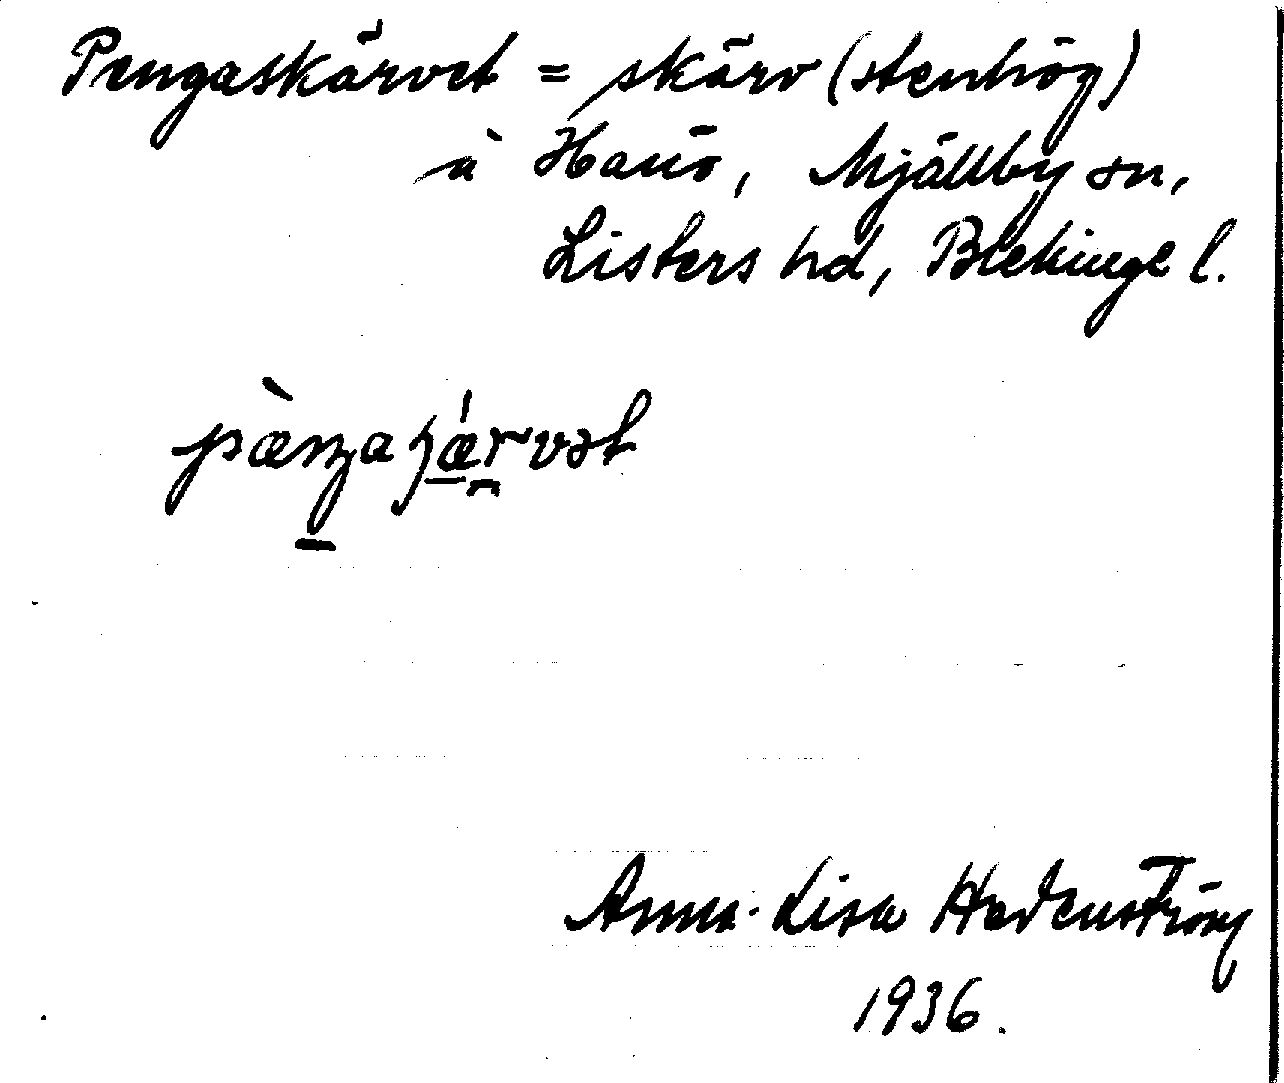 Pengaskärvet = skärv (stenhög)
å Hanö, Mjällby sn,
Listers hd, Blekinge l.
Anna-Lisa Hedenström
1936.